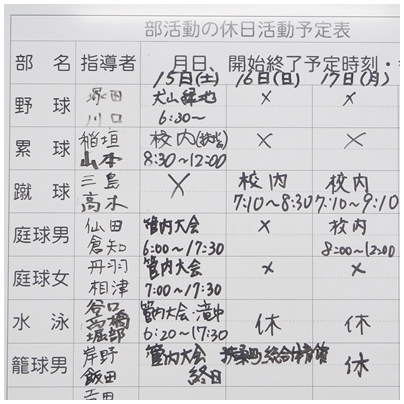 部活動の休日活動予定表
部 名 指導者 月日、開始終了予定時刻・
15日(土) 16日(日) 17日(月)
野 球 塚田 犬山緑地 × ×
川口 6:30〜
累 球 稲垣 校内 × ×
山本 8:30〜12:00
蹴 球 三島 × 校内 校内
高木 7:10〜8:30 7:10〜9:10
庭球男 仙田 管内大会 × 校内
倉知 6:00〜17:30 8:00〜12:00
庭球女 丹羽 管内大会 × ×
相津 7:00〜17:30
水 泳 谷口 管内大会・滝中 休 休
高橋
堀部 6:20〜17:30
籠球男 岸野 管内大会 扶桑町総合体育館 休
飯田 終日